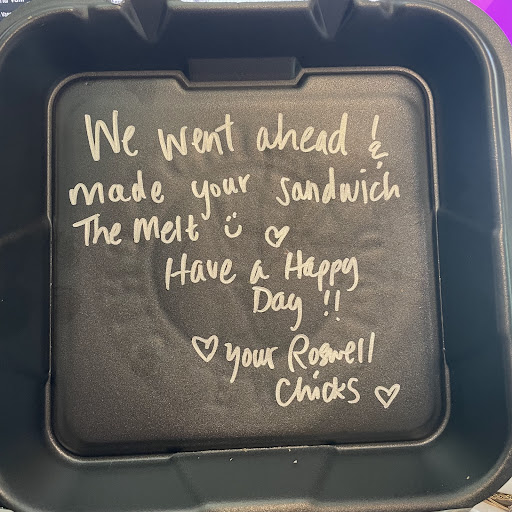 We went ahead !
&
made your sandwich
The Melt
Have a Happy
Day !!
your Roswell
Chicks